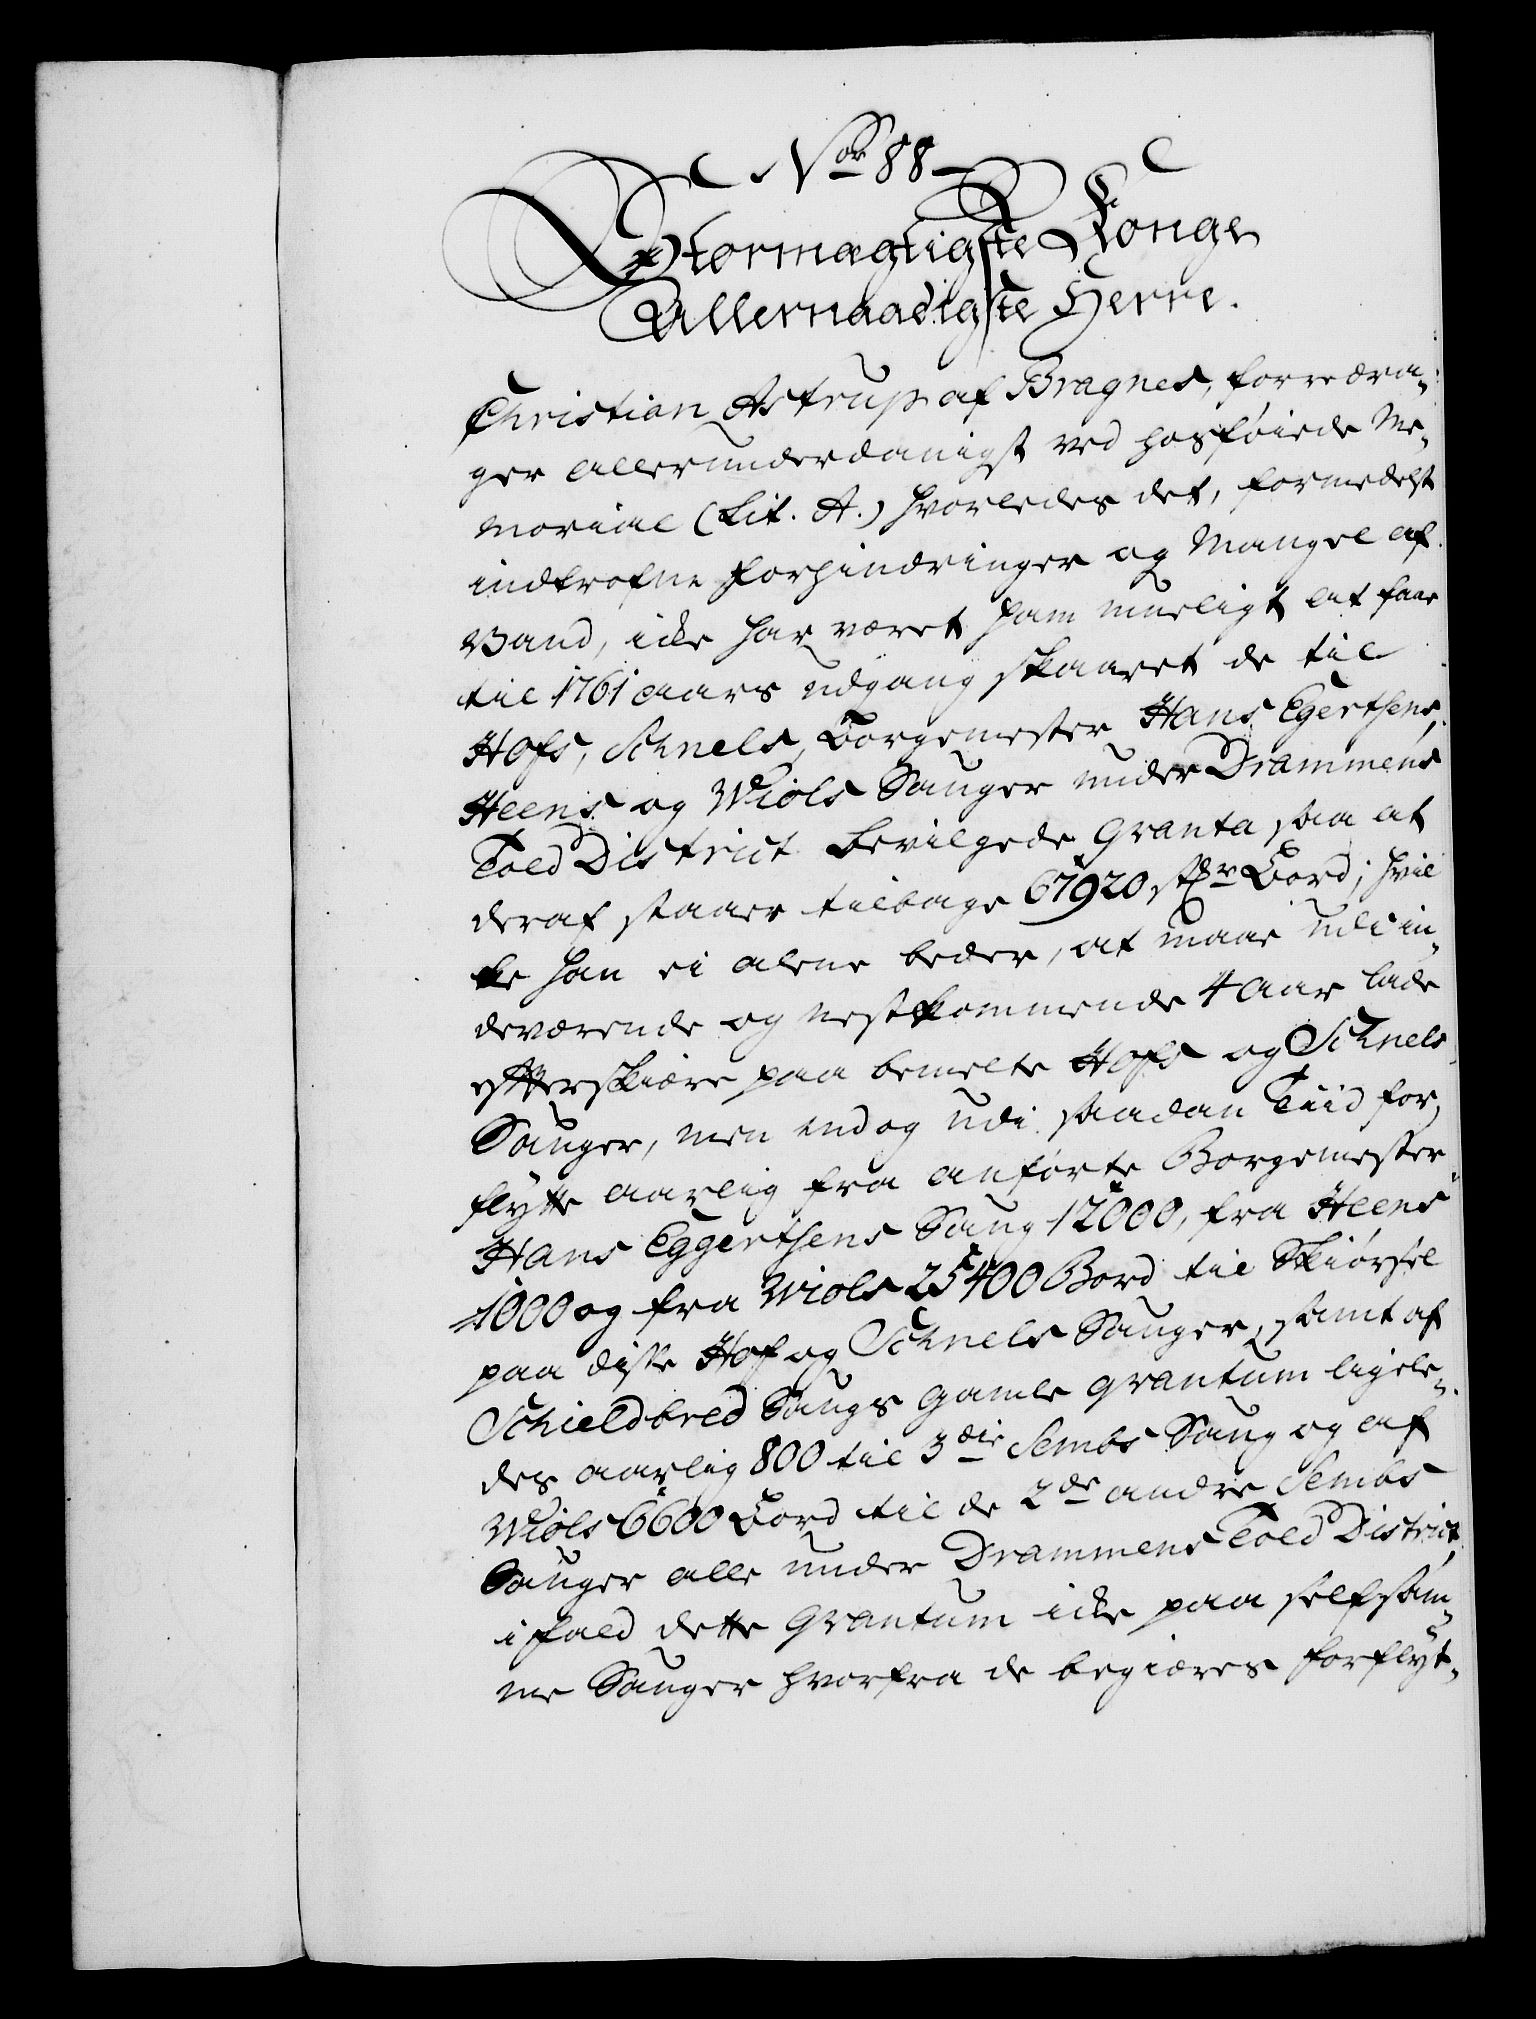 Nor 88
Stormægtigste Konge
Allernaadigste Herre.
Christian Astrup af Bragnes, forredra-
ger allerunderdanigst ved hosføiede Me-
moriale (Lit. A.) hvorledes det, formedelst
indtrofne Forhindringer og Mangel af
Vand, icke har været ham mueligt at faae
til 1761 aars udgang skaaret de til
Hofs, Schnels, Borgemester Hans Egertsens,
Heens og Wiols Sauger under Drammens
Told District bevilgede qvanta, saa at
deraf staaer tilbage 67920 stkr Bord; hvil
ke han ei alene beder, at maae udi in-
deværende og nestkommende 4 Aar lade
efterskiære paa bemelte Hofs og Schnels
Sauger, men endog udi saadan Tiid for-
flytte aarlig fra anførte Borgemester
Hans Eggertsens Saug 12000, fra Heens
1000 og fra Wiols 25400 Bord til Skiørsel
paa disse Hof og Schnels Sauger, samt af
Schieldbred Saugs gamle qvantum ligele-
des aarlig 800 til 3die Sembs Saug og af
Wiols 6600 Bord til de 2de andre Sembs
Sauger alle under Drammens Told District,
ifald dette qvantum icke paa selfsam-
me Sauger hvorfra de begiæres forflyt-